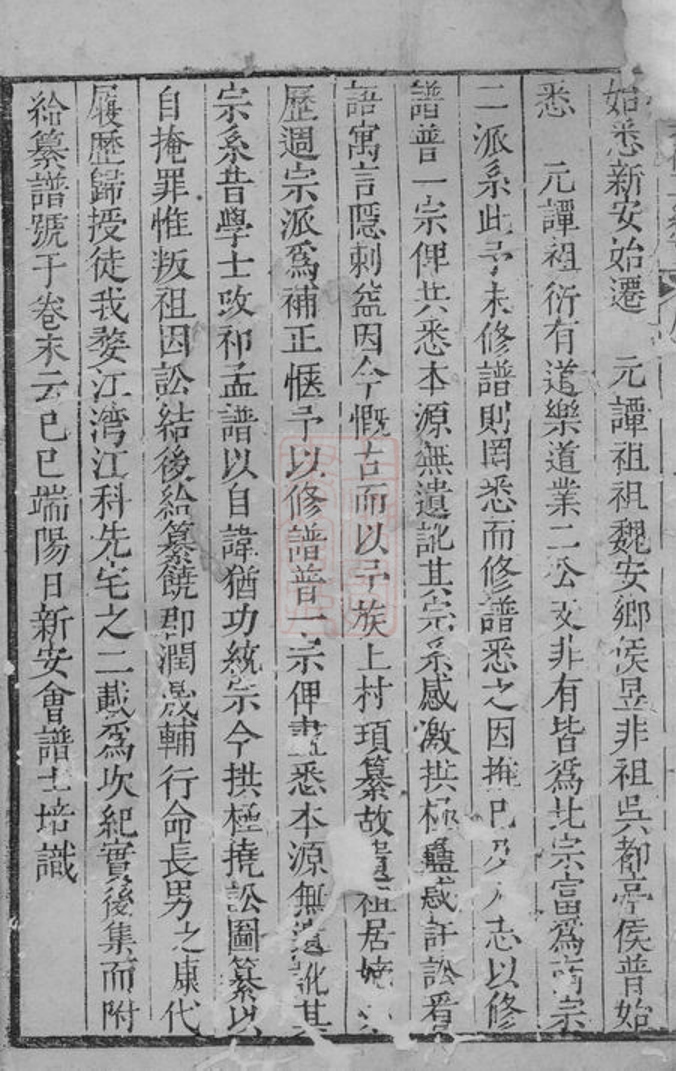 始悉新安始遷　元譚祖祖魏安鄉侯昱非祖吳都亭侯普始
悉　元譚祖衍有道樂道業二公文非有皆爲北宗富爲南宗
二派系此予未修譜則罔悉而修譜悉之因推己及人志以修
譜普一宗俾共悉本源無遺訛其宗系感激拱極蠱惑訐訟看
語寓言隱刺益因今慨古而以予族上村頊纂故遺祖居
歷週宗派爲補正愜予以修譜普一宗俾盡悉本源無遺訛其
宗系昔學士攺祁孟譜以自諱猶功統宗今拱極撓訟圖纂以
自掩罪惟叛祖因訟結後給纂饒郡潤晟輔行命長男之康代
履歷歸授徒我婺江湾江科先宅之二載爲次紀實後集而附
給纂譜號于卷末云己巳端陽日新安會譜士培識